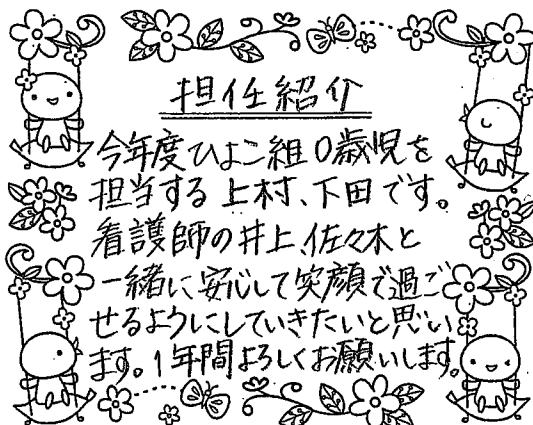 担任紹介
今年度ひよこ組0歳児を
担当する上村、下田です。
看護師の井上、佐々木と
一緒に安心して笑顔で過ご
せるようにしていきたいと思い
ます。1年間よろしくお願いします。